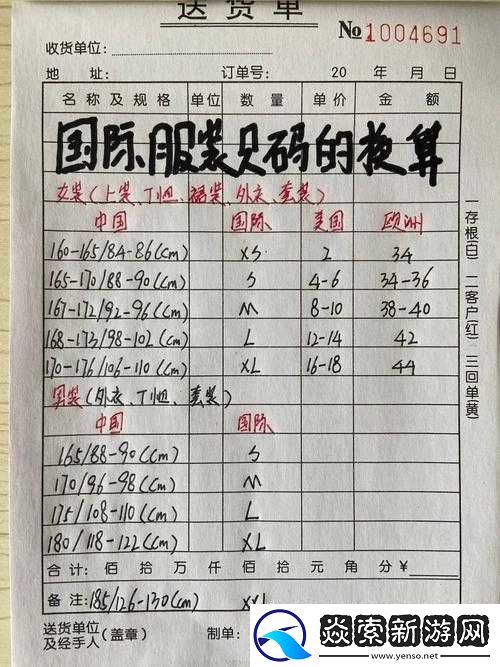 送货单
№1004691
收货单位:
地 址: 订单号: 20 年 月 日
名称及规格 单位 数量 单价 金额
国际服装尺码的换算
女装(上装、T恤、裙装、外衣、套装)
中国 国际 美国 欧洲
160-165/84-86(cm) XS 2 34
165-170/88-90(cm) S 4-6 34-36
167-172/92-96(cm) M 8-10 38-40
168-173/98-102(cm) L 12-14 42
170-176/106-110(cm) XL 16-18 44
男装(外衣、T恤、套装)
中国 国际
165/88-90(cm) S
170/96-98(cm) M
175/108-110(cm) L
180/118-122(cm) XL
合计: 佰 拾 万 仟 佰 拾 元 角 分 ¥
备注: 185/126-130(cm) XXL
送货单位
及经手人(盖章) 制单:
一存根(白) 二客户(红) 三回单(黄)
焱索新游网
www.yenso.net